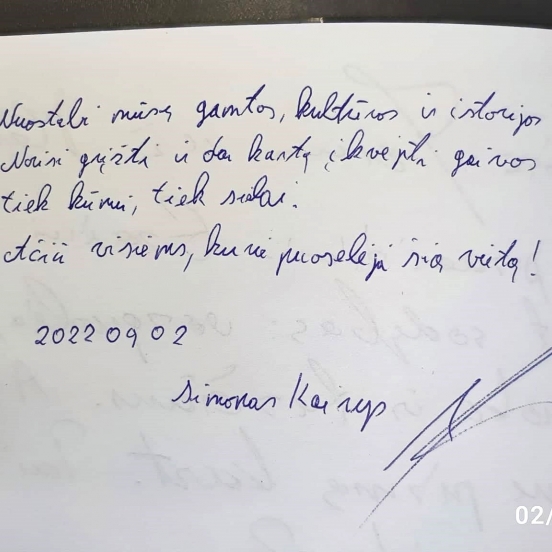 Nuostabi mūsų gamtos, kultūros ir istorijos
Norisi grįžti ir dar kartą įkvėpti gaivos
tiek kūnui, tiek sielai.
Ačiū visiems, kurie puoselėja šią vietą!
2022 09 02
Simonas Kairys
02/